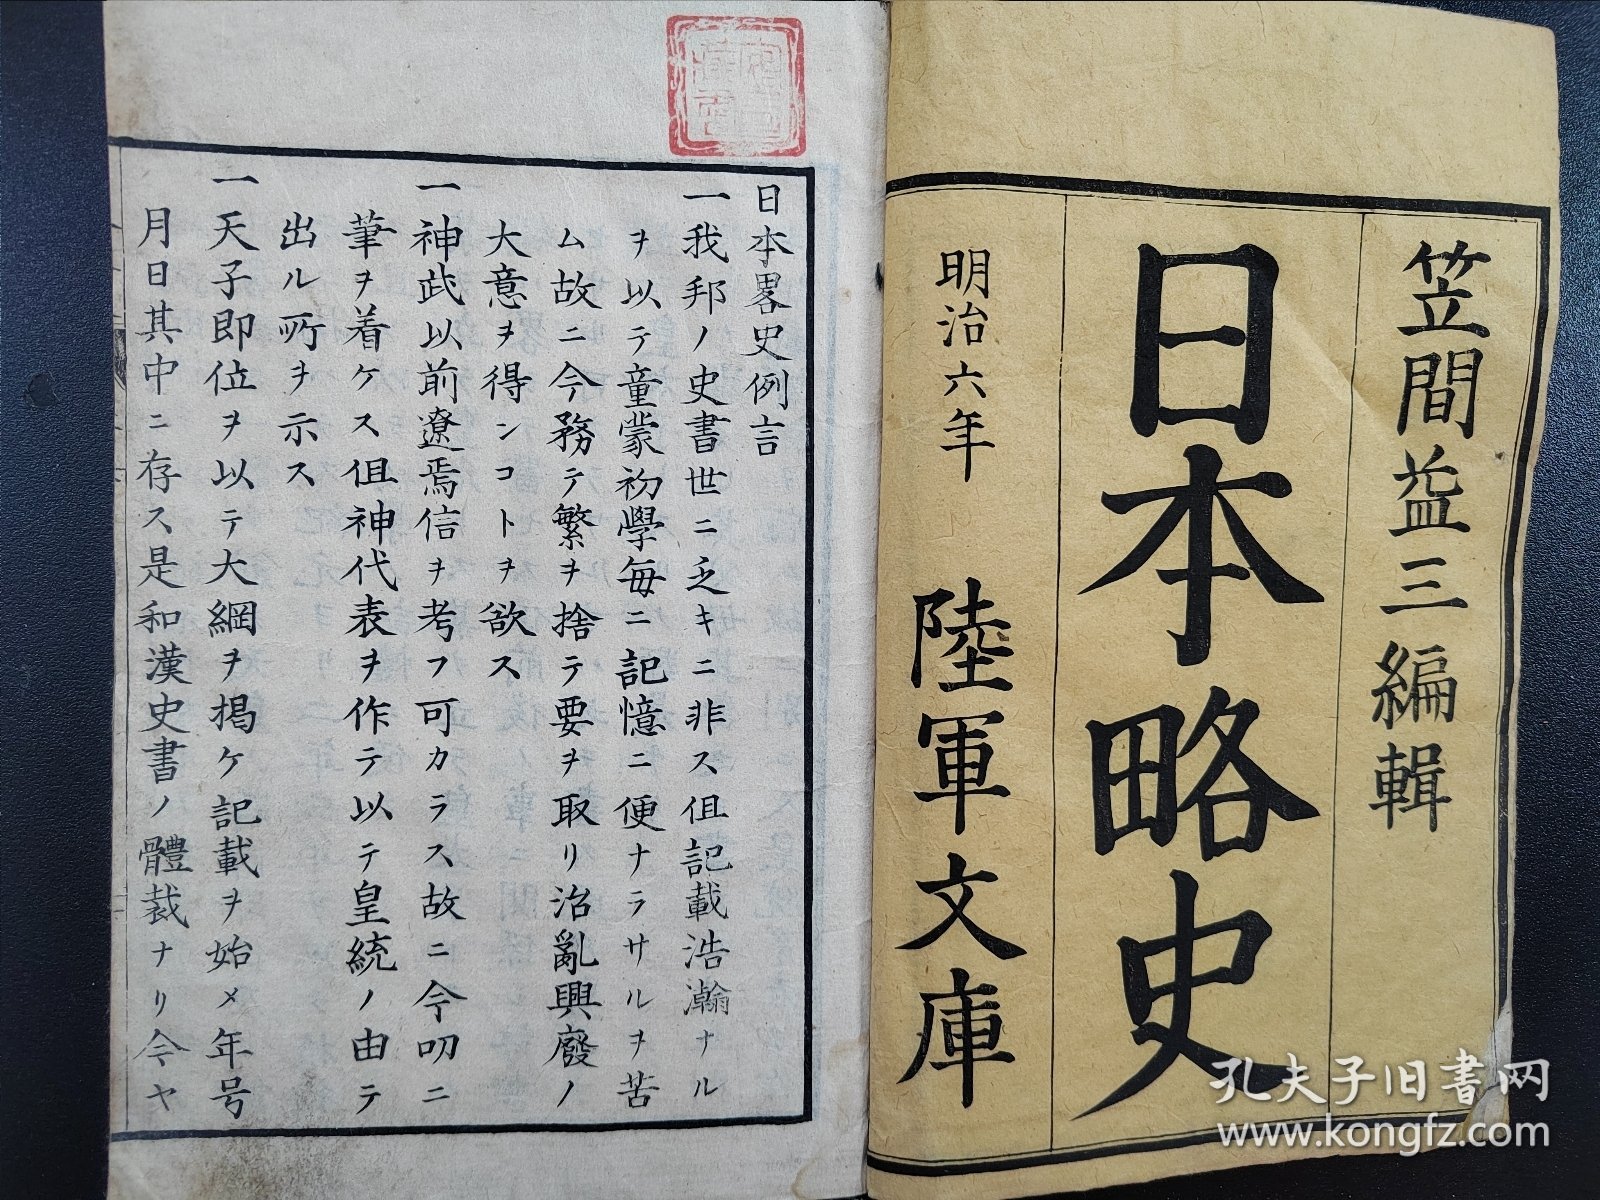 笠間益三編輯
日本略史
明治六年 陸軍文庫
日本畧史例言
一我邦ノ史書世ニ乏キニ非ス伹記載浩瀚ナル
ヲ以テ童蒙初學毎ニ記憶ニ便ナラサルヲ苦
ム故ニ今務テ繁ヲ捨テ要ヲ取リ治亂興廢ノ
大意ヲ得ンコトヲ欲ス
一神武以前遼焉信ヲ考フ可カラス故ニ今叨ニ
筆ヲ着ケス伹神代表ヲ作テ以テ皇統ノ由テ
出ル所ヲ示ス
一天子即位ヲ以テ大綱ヲ掲ケ記載ヲ始メ年号
月日其中ニ存ス是和漢史書ノ體裁ナリ今ヤ
孔夫子旧書网
www.kongfz.com